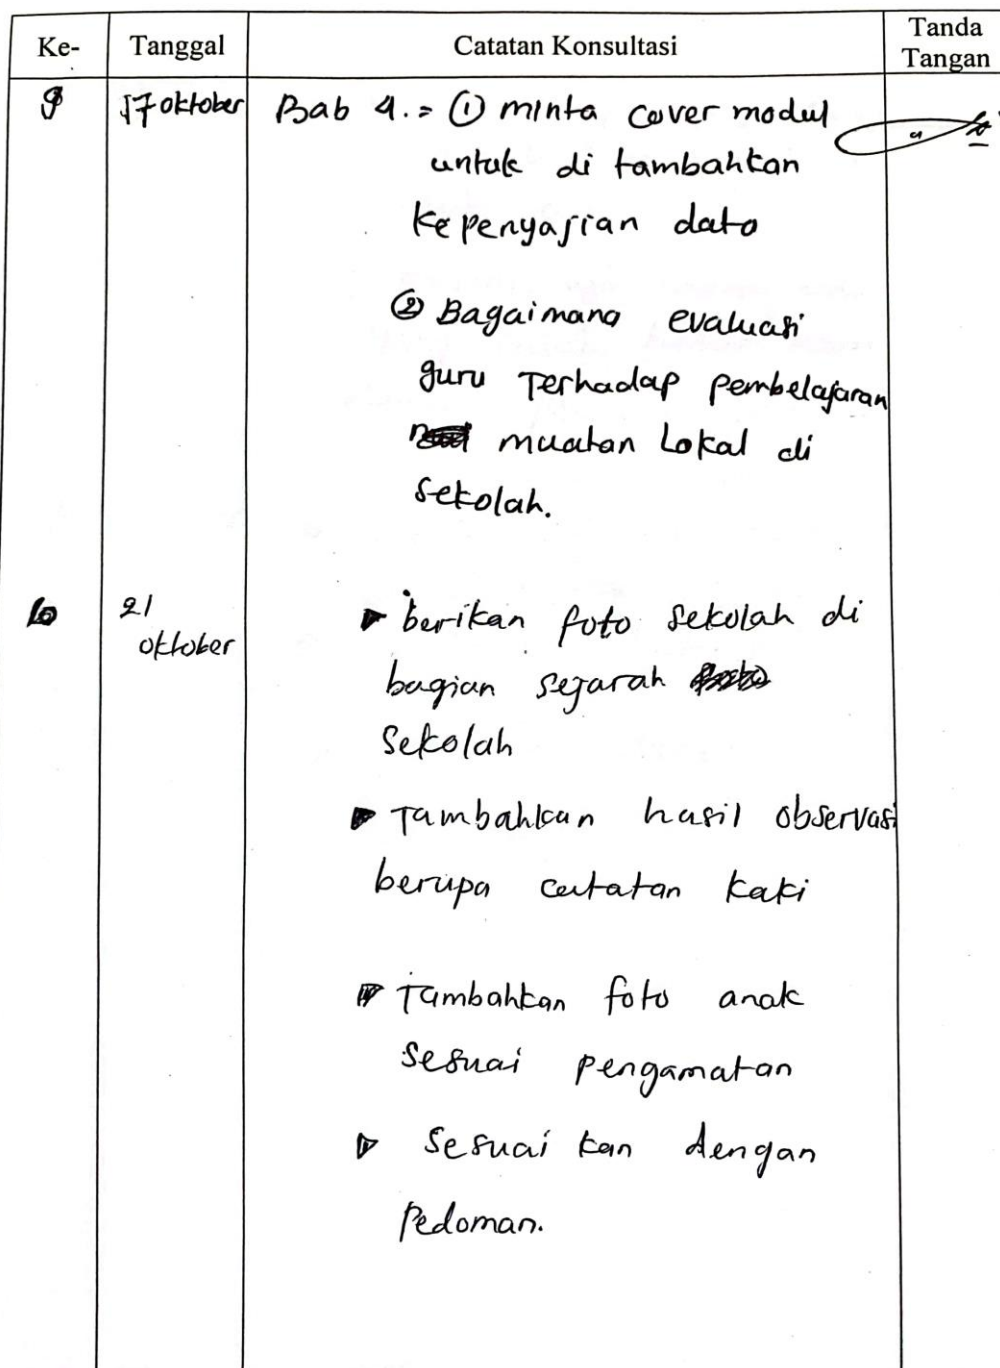 Ke- Tanggal Catatan Konsultasi Tanda Tangan
9 17 oktober Bab 4. = ① minta cover modul
untuk di tambahkan
ke penyajian data
② Bagaimana evaluasi
guru Terhadap pembelajaran
muatan Lokal di
sekolah.
10 21 oktober ▶ berikan foto sekolah di
bagian sejarah
sekolah
▶ Tambahkan hasil observasi
berupa catatan kaki
▶ Tambahkan foto anak
sesuai pengamatan
▶ sesuai kan dengan
Pedoman.